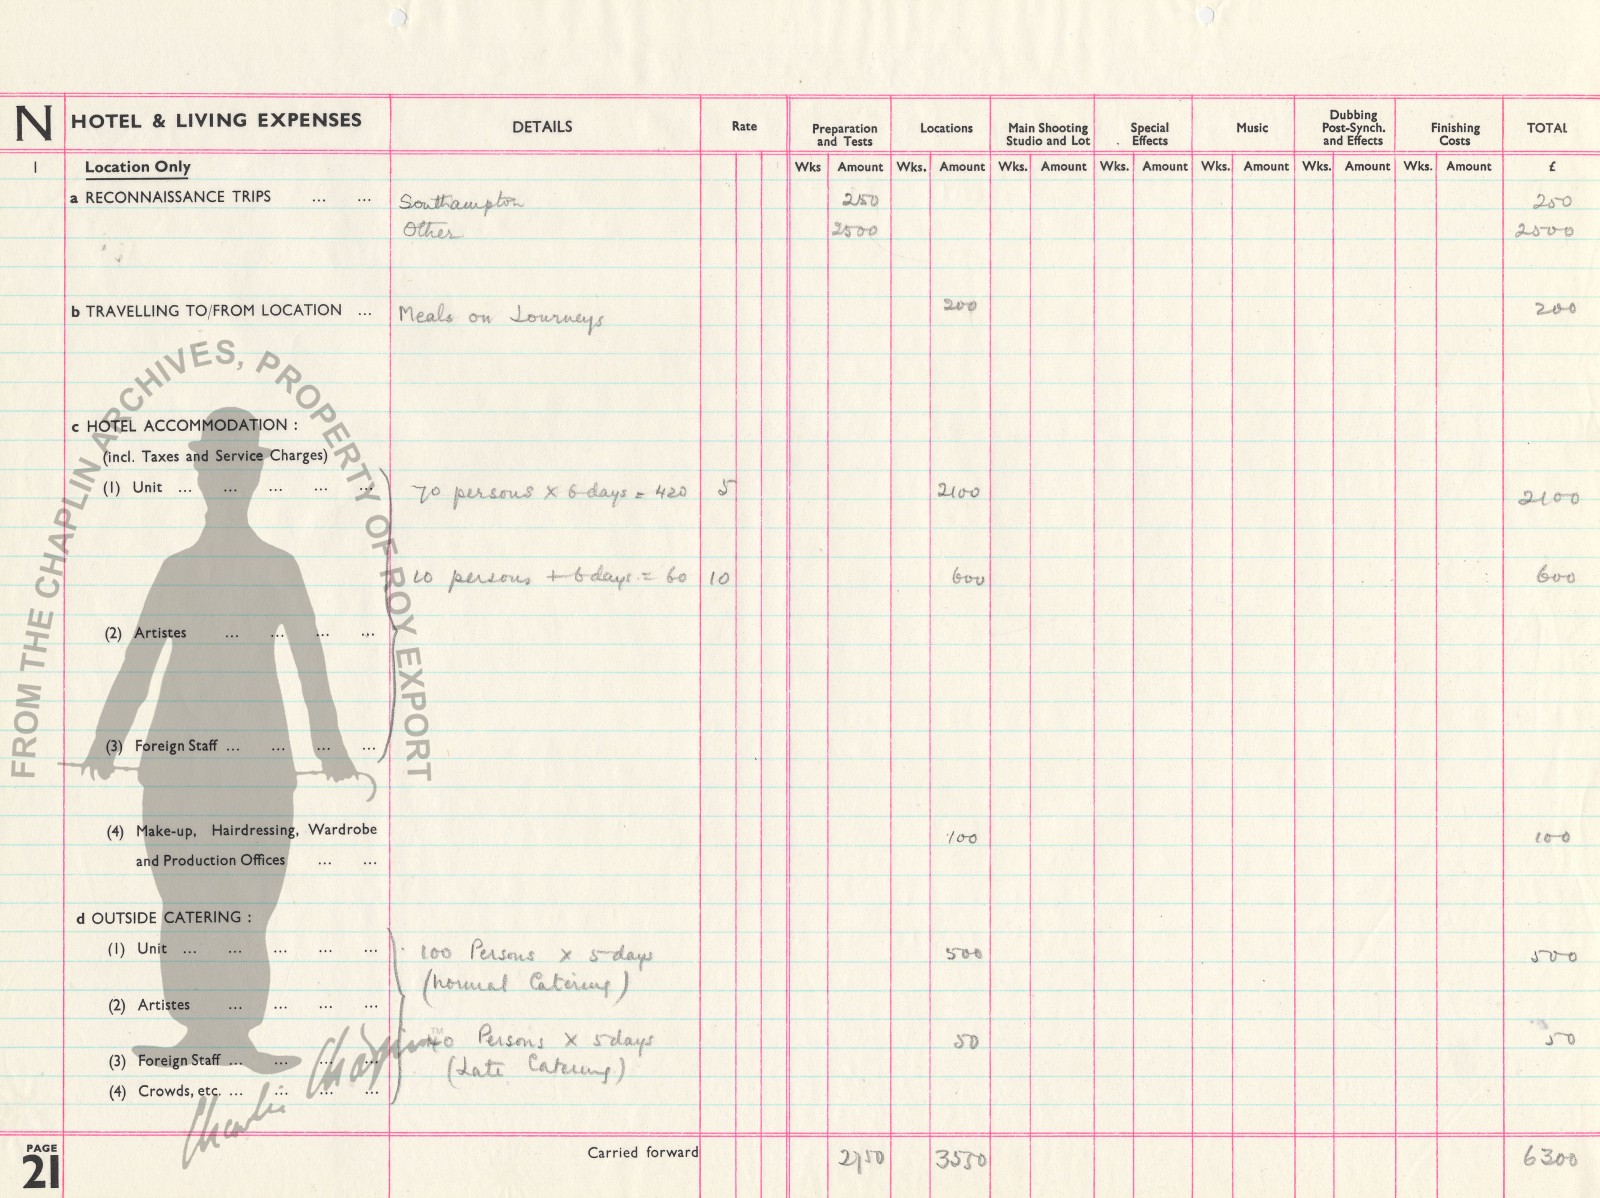 N HOTEL & LIVING EXPENSES DETAILS Rate Preparation and Tests Locations Main Shooting Studio and Lot Special Effects Music Dubbing Post-Synch. and Effects Finishing Costs TOTAL
1 Location Only Wks Amount Wks. Amount Wks. Amount Wks. Amount Wks. Amount Wks. Amount Wks. Amount £
a RECONNAISSANCE TRIPS ... ... Southampton 250 250
Other 2500 2500
b TRAVELLING TO/FROM LOCATION ... Meals on Journeys 200 200
c HOTEL ACCOMMODATION :
(incl. Taxes and Service Charges)
(1) Unit ... ... ... ... ... 70 persons x 6 days = 420 5 2100 2100
10 persons + 6 days = 60 10 600 600
(2) Artistes ... ... ... ...
(3) Foreign Staff ... ... ... ...
(4) Make-up, Hairdressing, Wardrobe 100 100
and Production Offices ... ...
d OUTSIDE CATERING :
(1) Unit ... ... ... ... ... 100 Persons x 5 days 500 500
(Normal Catering)
(2) Artistes ... ... ... ...
40 Persons x 5 days 50 50
(3) Foreign Staff ... ... ... ... (Late Catering)
(4) Crowds, etc. ... ... ... ...
PAGE 21 Carried forward 2750 3550 6300
FROM THE CHAPLIN ARCHIVES, PROPERTY OF ROY EXPORT
Charlie Chaplin TM